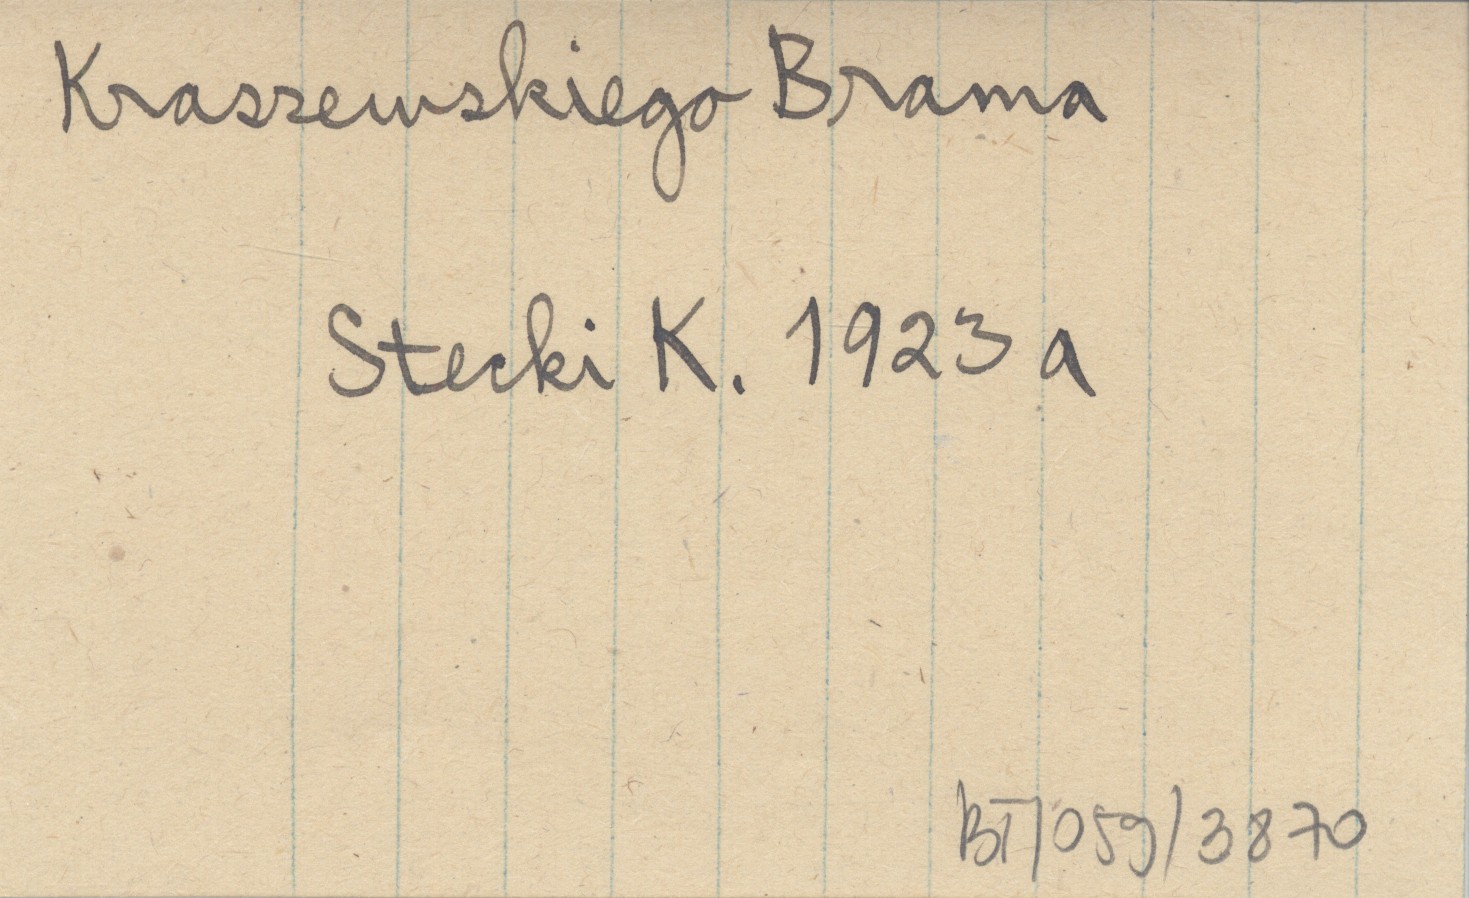 Kraszewskiego Brama
Stecki K. 1923 a
BT/059/3870